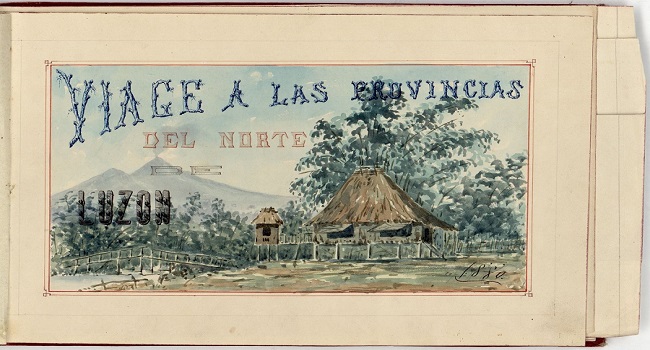 VIAGE A LAS PROVINCIAS
DEL NORTE
DE
LUZON